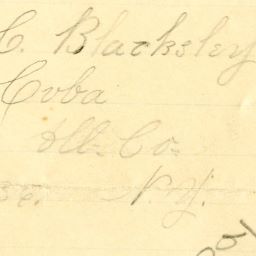 C. Blacksley
Coba
All. Co.
N. Y.